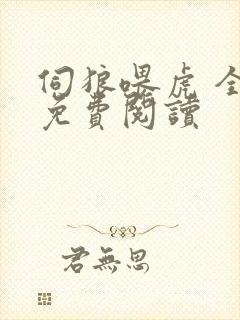 伺狼喂虎 全
免費閱讀
君無思